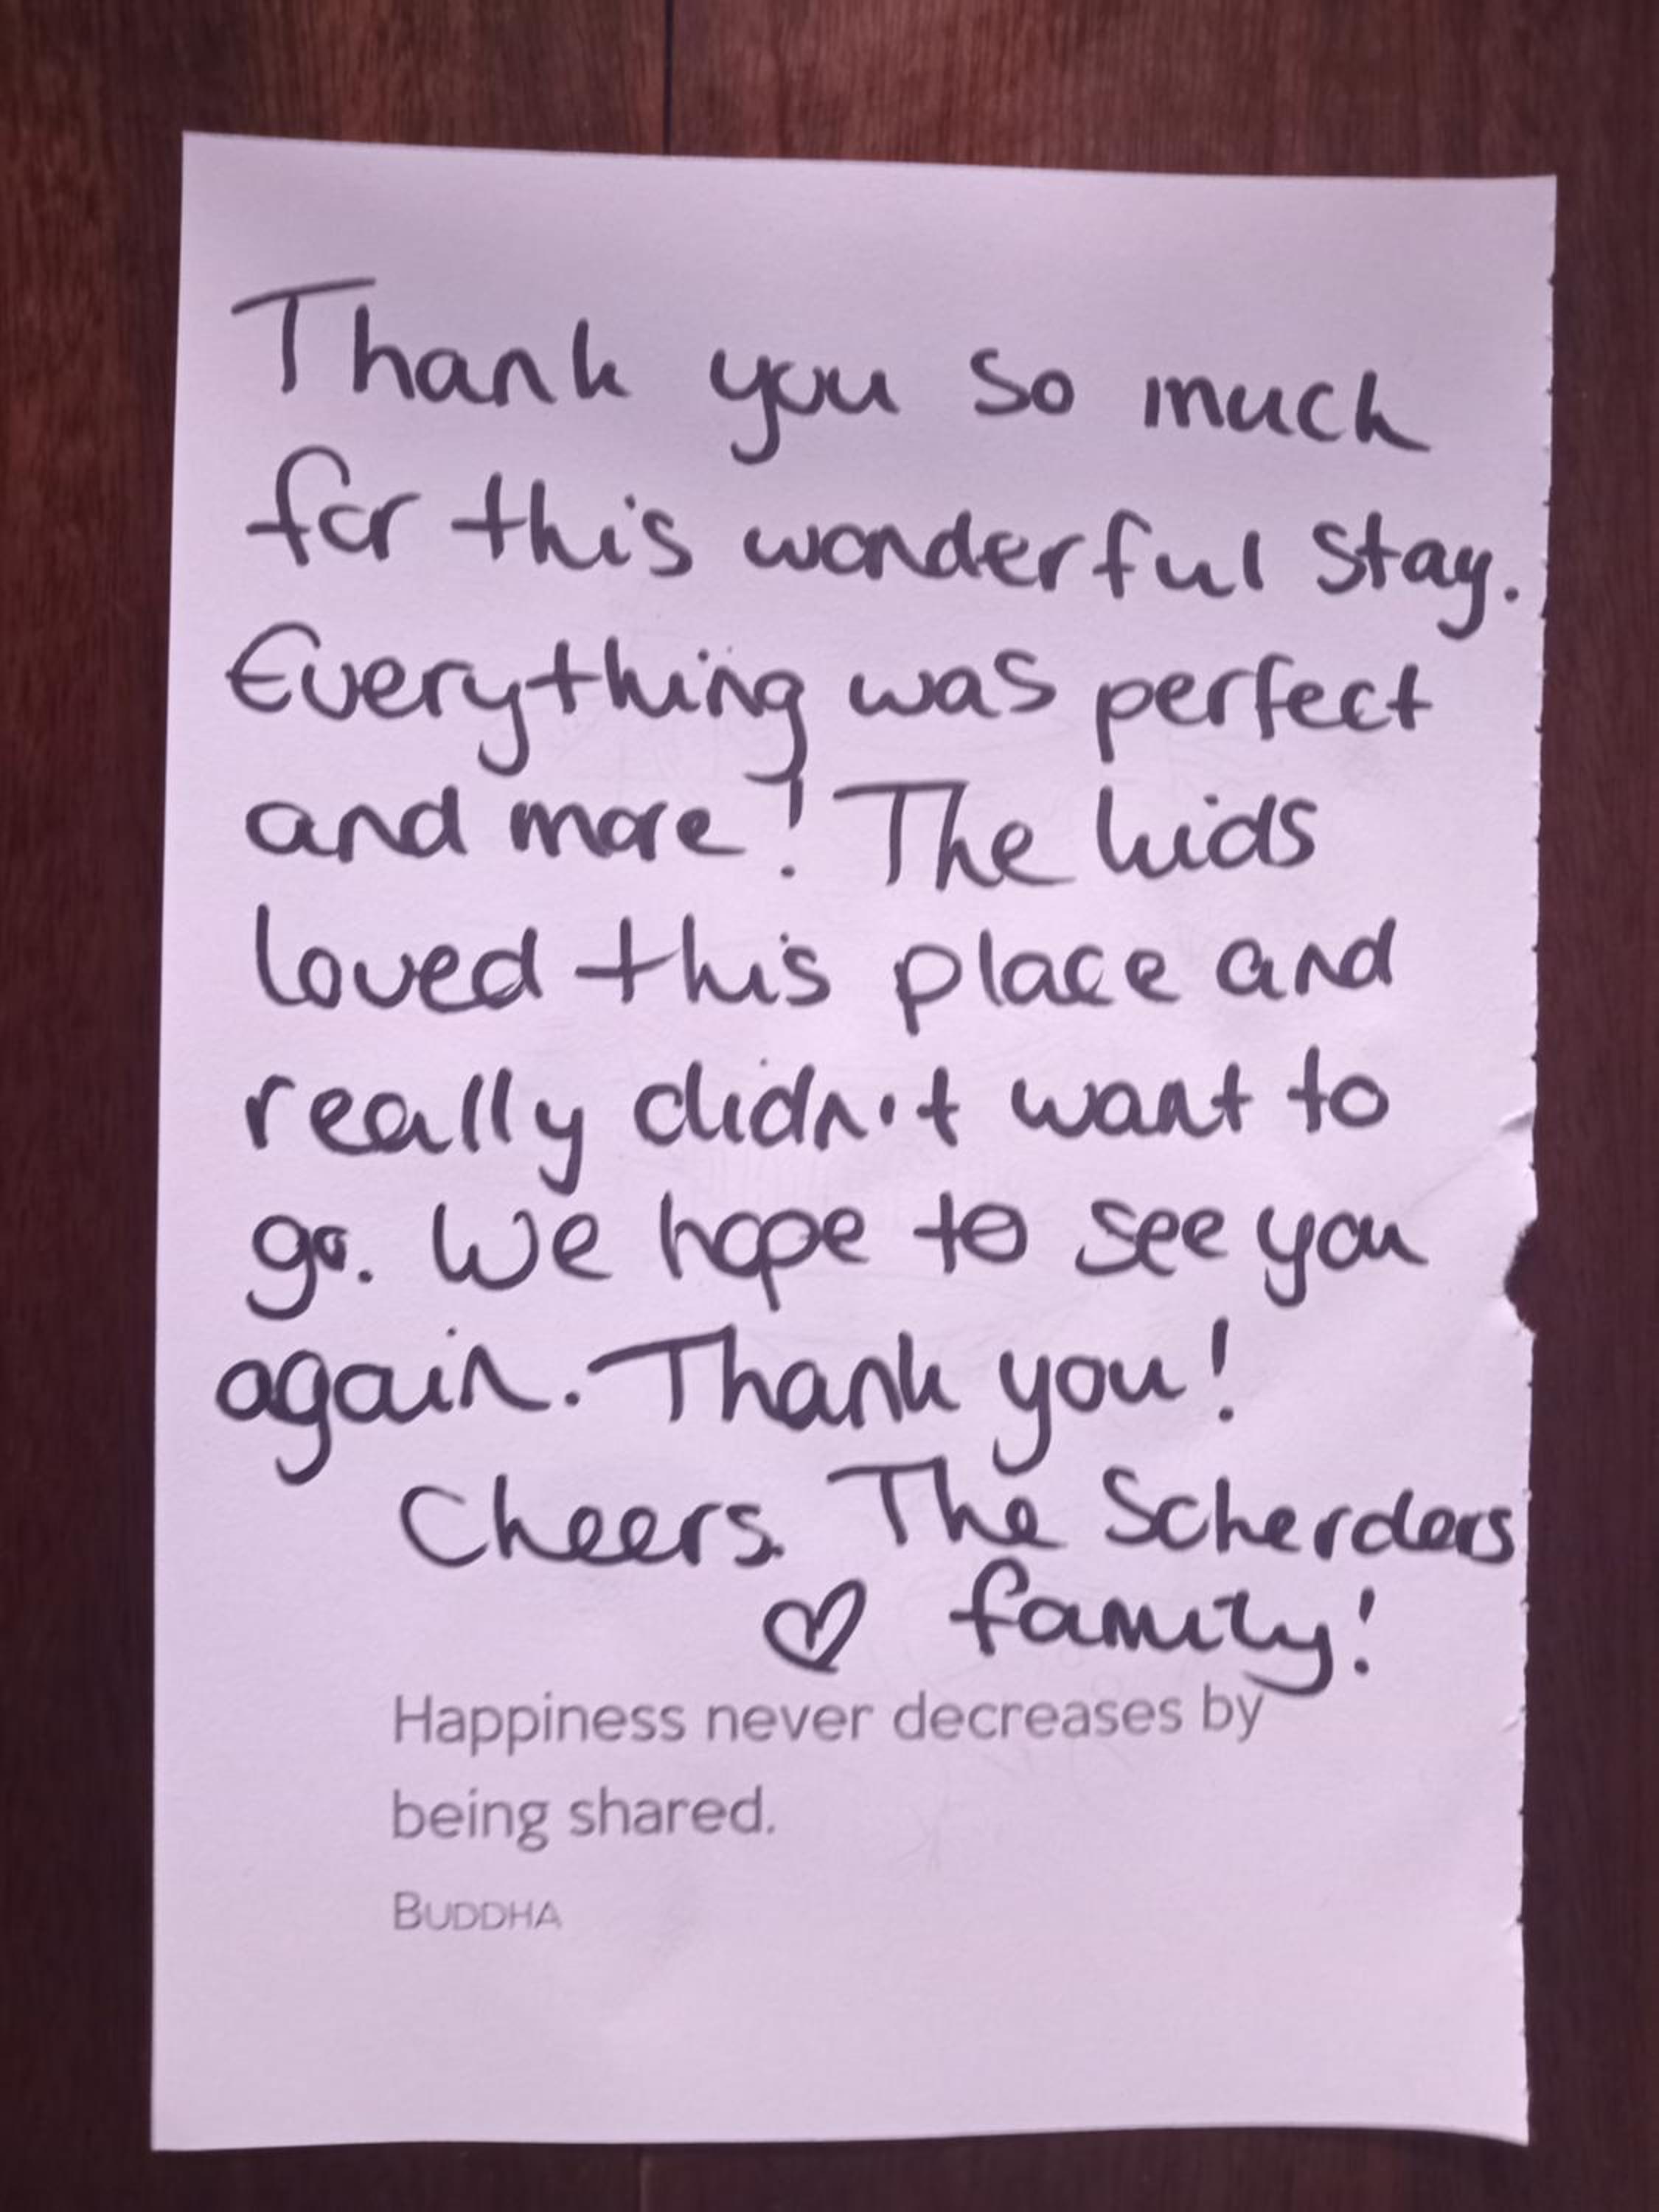 Thank you so much
for this wonderful stay.
Everything was perfect
and more! The kids
loved this place and
really didn't want to
go. We hope to see you
again. Thank you!
Cheers. The Scherders
♡ family!
Happiness never decreases by
being shared.
BUDDHA